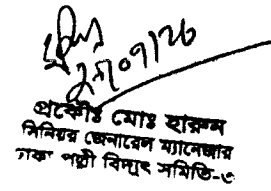 প্রকৌঃ মোঃ হারুন
সিনিয়র জেনারেল ম্যানেজার
ঢাকা পল্লী বিদ্যুৎ সমিতি-৩